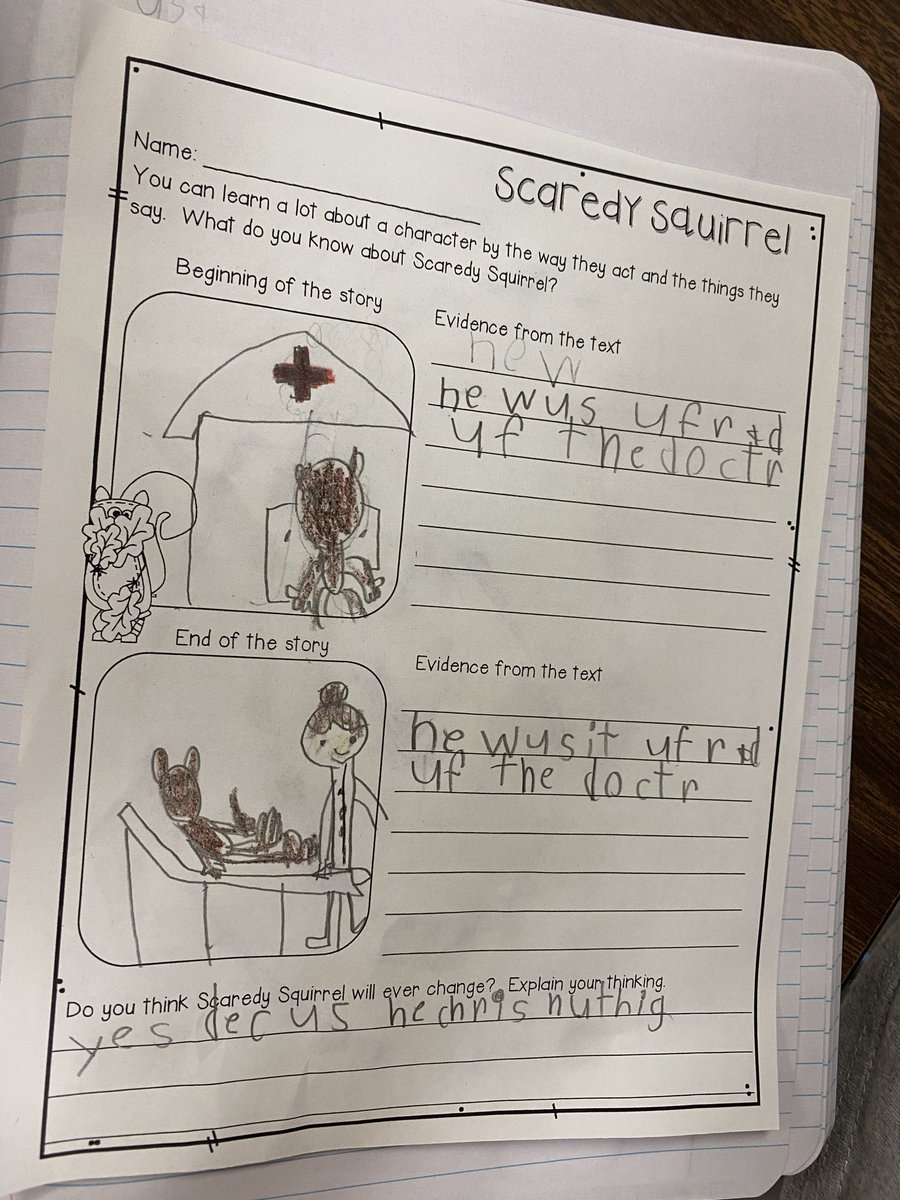 Name:
Scaredy Squirrel
You can learn a lot about a character by the way they act and the things they
say. What do you know about Scaredy Squirrel?
Beginning of the story
Evidence from the text
hew
he wus ufrad
uf thedoctr
End of the story
Evidence from the text
he wusit ufrad
uf the doctr
Do you think Scaredy Squirrel will ever change? Explain your thinking.
yes hechris nuthig